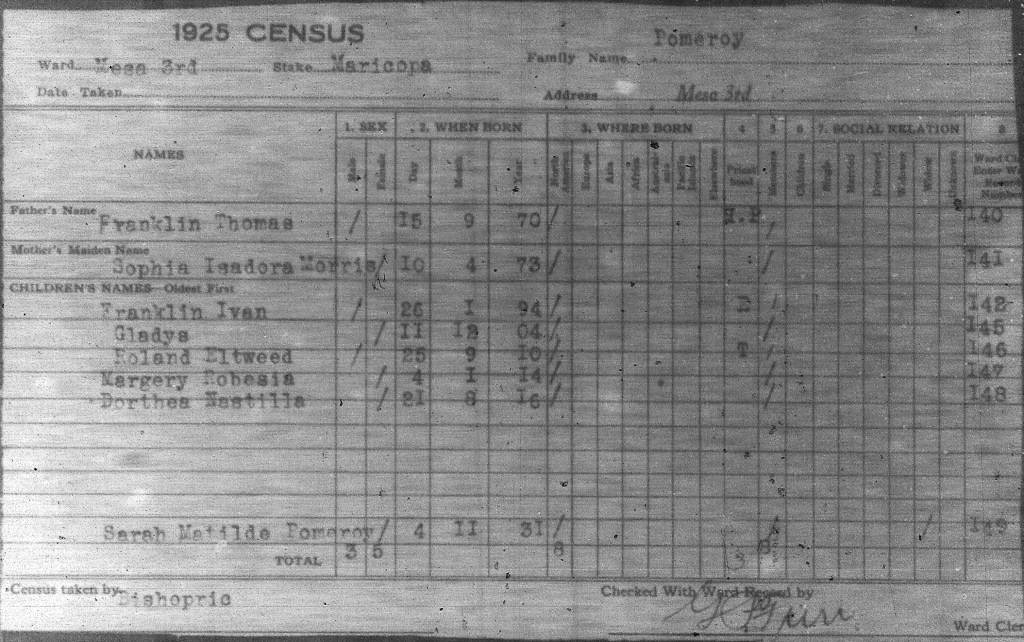 1925 CENSUS
Pomeroy
Ward Mesa 3rd Stake Maricopa Family Name
Date Taken Address Mesa 3rd
NAMES 1. SEX 2. WHEN BORN 3. WHERE BORN 4 5 6 7. SOCIAL RELATION 8
Male Female Day Month Year North America Europe Asia Africa Pacific Islands Priesthood Members Children Single Married Divorced Widower Widow Unknown
Father's Name
Franklin Thomas / 15 9 70 / H.P / 140
Mother's Maiden Name
Sophia Isadora Morris / 10 4 73 / / 141
CHILDREN'S NAMES—Oldest First
Franklin Ivan / 26 I 94 / E / 142
Gladys / II 12 04 / / 145
Roland Eltweed / 25 9 I0 / T / 146
Margery Robesia / 4 I I4 / / 147
Dorthea Nastilla / 2I 8 I6 / / 148
Sarah Matilde Pomeroy / 4 II 3I / / / 149
TOTAL 3 5 8 3 8
Census taken by Bishopric Checked With Ward Record by
Ward Cler